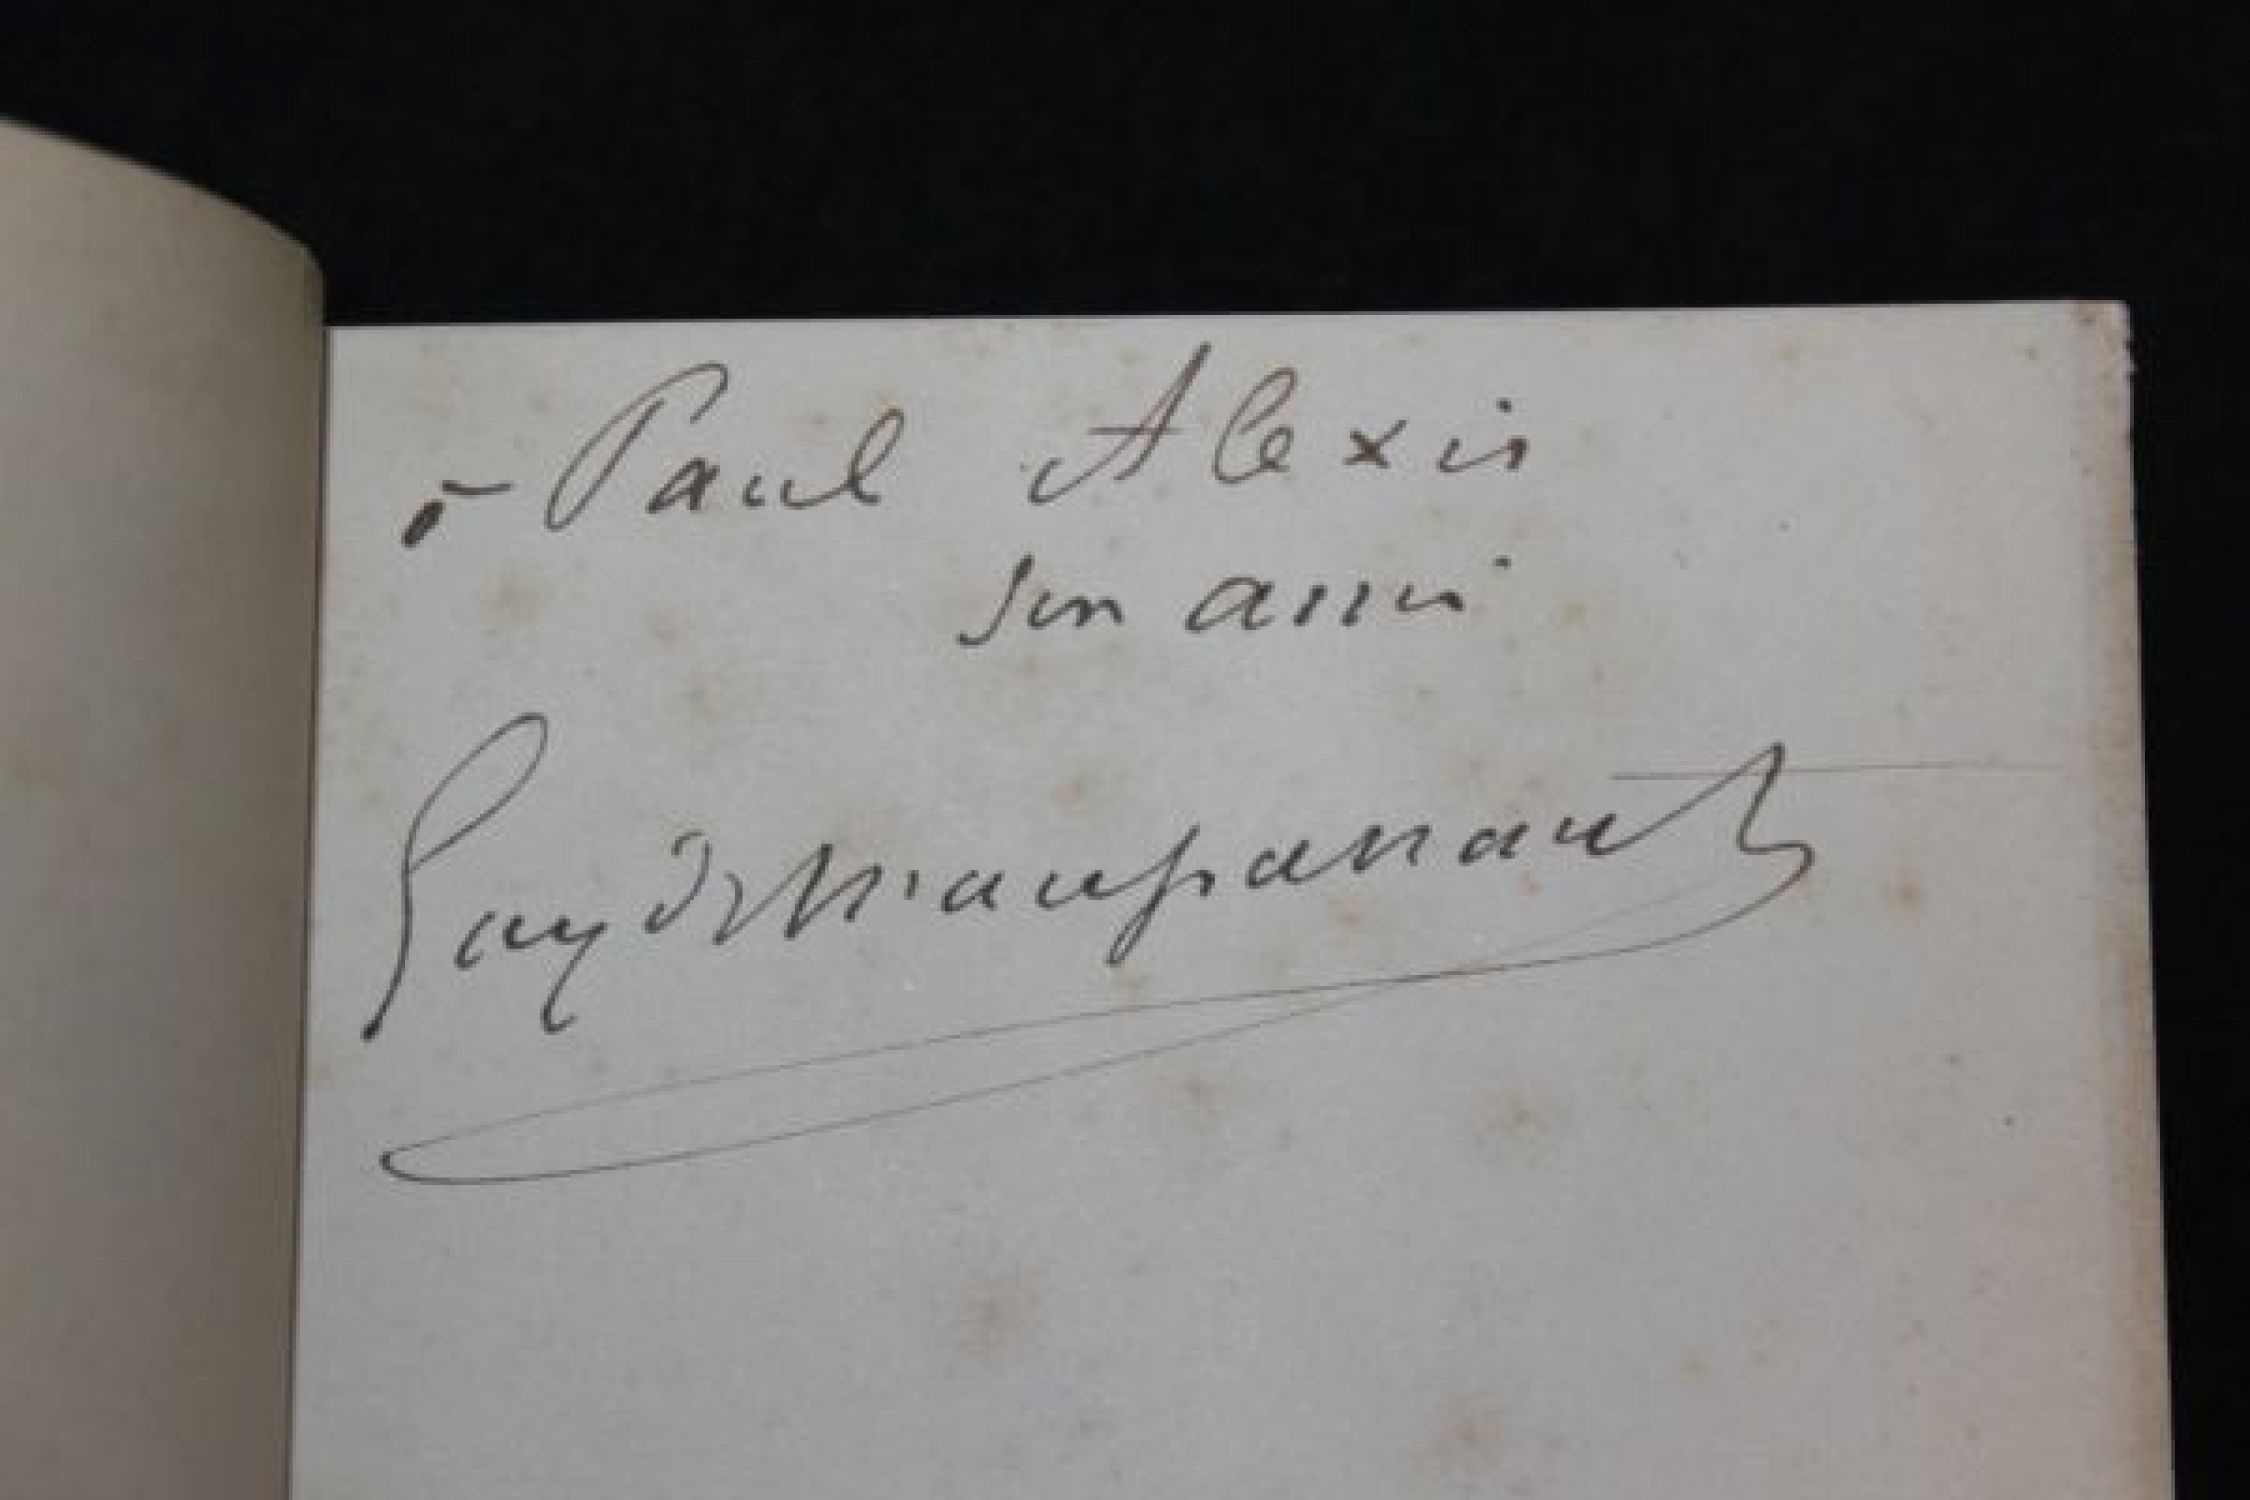 à Paul Alexis
son ami
Guy de Maupassant